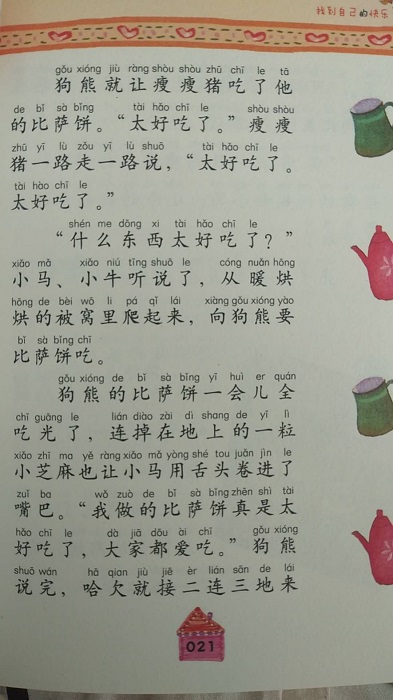 找到自己的快乐
gǒu xióng jiù ràng shòu shòu zhū chī le tā
狗熊就让瘦瘦猪吃了他
de bǐ sà bǐng tài hǎo chī le shòu shòu
的比萨饼。“太好吃了。”瘦瘦
zhū yī lù zǒu yī lù shuō tài hǎo chī le
猪一路走一路说，“太好吃了。
tài hǎo chī le
太好吃了。”
shén me dōng xi tài hǎo chī le
“什么东西太好吃了？”
xiǎo mǎ xiǎo niú tīng shuō le cóng nuǎn hōng
小马、小牛听说了，从暖烘
hōng de bèi wō li pá qǐ lái xiàng gǒu xióng yào
烘的被窝里爬起来，向狗熊要
bǐ sà bǐng chī
比萨饼吃。
gǒu xióng de bǐ sà bǐng yī huì er quán
狗熊的比萨饼一会儿全
chī guāng le lián diào zài dì shang de yī lì
吃光了，连掉在地上的一粒
xiǎo zhī ma yě ràng xiǎo mǎ yòng shé tou juǎn jìn le
小芝麻也让小马用舌头卷进了
zuǐ ba wǒ zuò de bǐ sà bǐng zhēn shì tài
嘴巴。“我做的比萨饼真是太
hǎo chī le dà jiā dōu ài chī gǒu xióng
好吃了，大家都爱吃。”狗熊
shuō wán hā qian jiù jiē èr lián sān de lái
说完，哈欠就接二连三地来
021